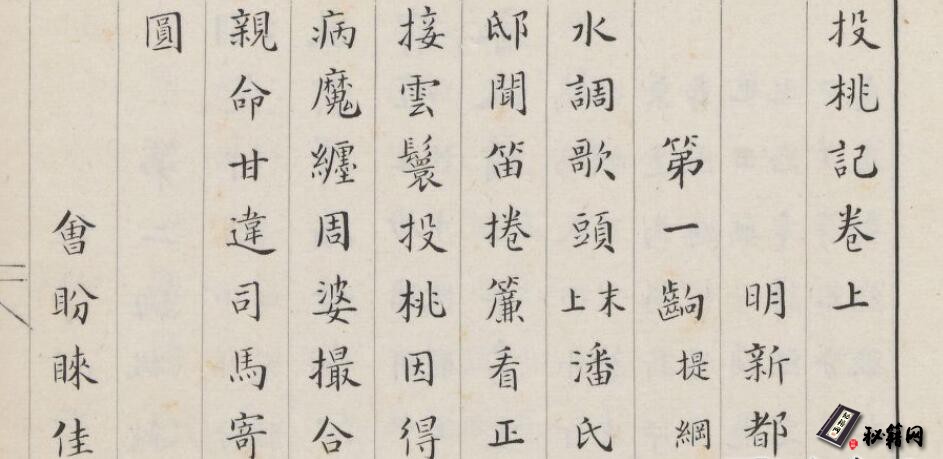 投桃記卷上
明新都
第一齣 提綱
水調歌頭 末上 潘氏
邸聞笛捲簾看正
接雲鬟投桃因得
病魔纏周婆撮合
親命甘違司馬寄
圓
會盼睞佳
秘籍网